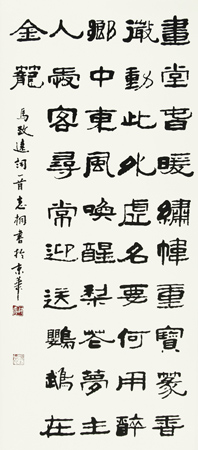 畫堂春暖繡幃重寶篆香
微動此外虛名要何用醉
鄉中東風喚醒梨花夢主
人愛客尋常迎送鸚鵡在
金籠
馬致遠詞一首 書於京華